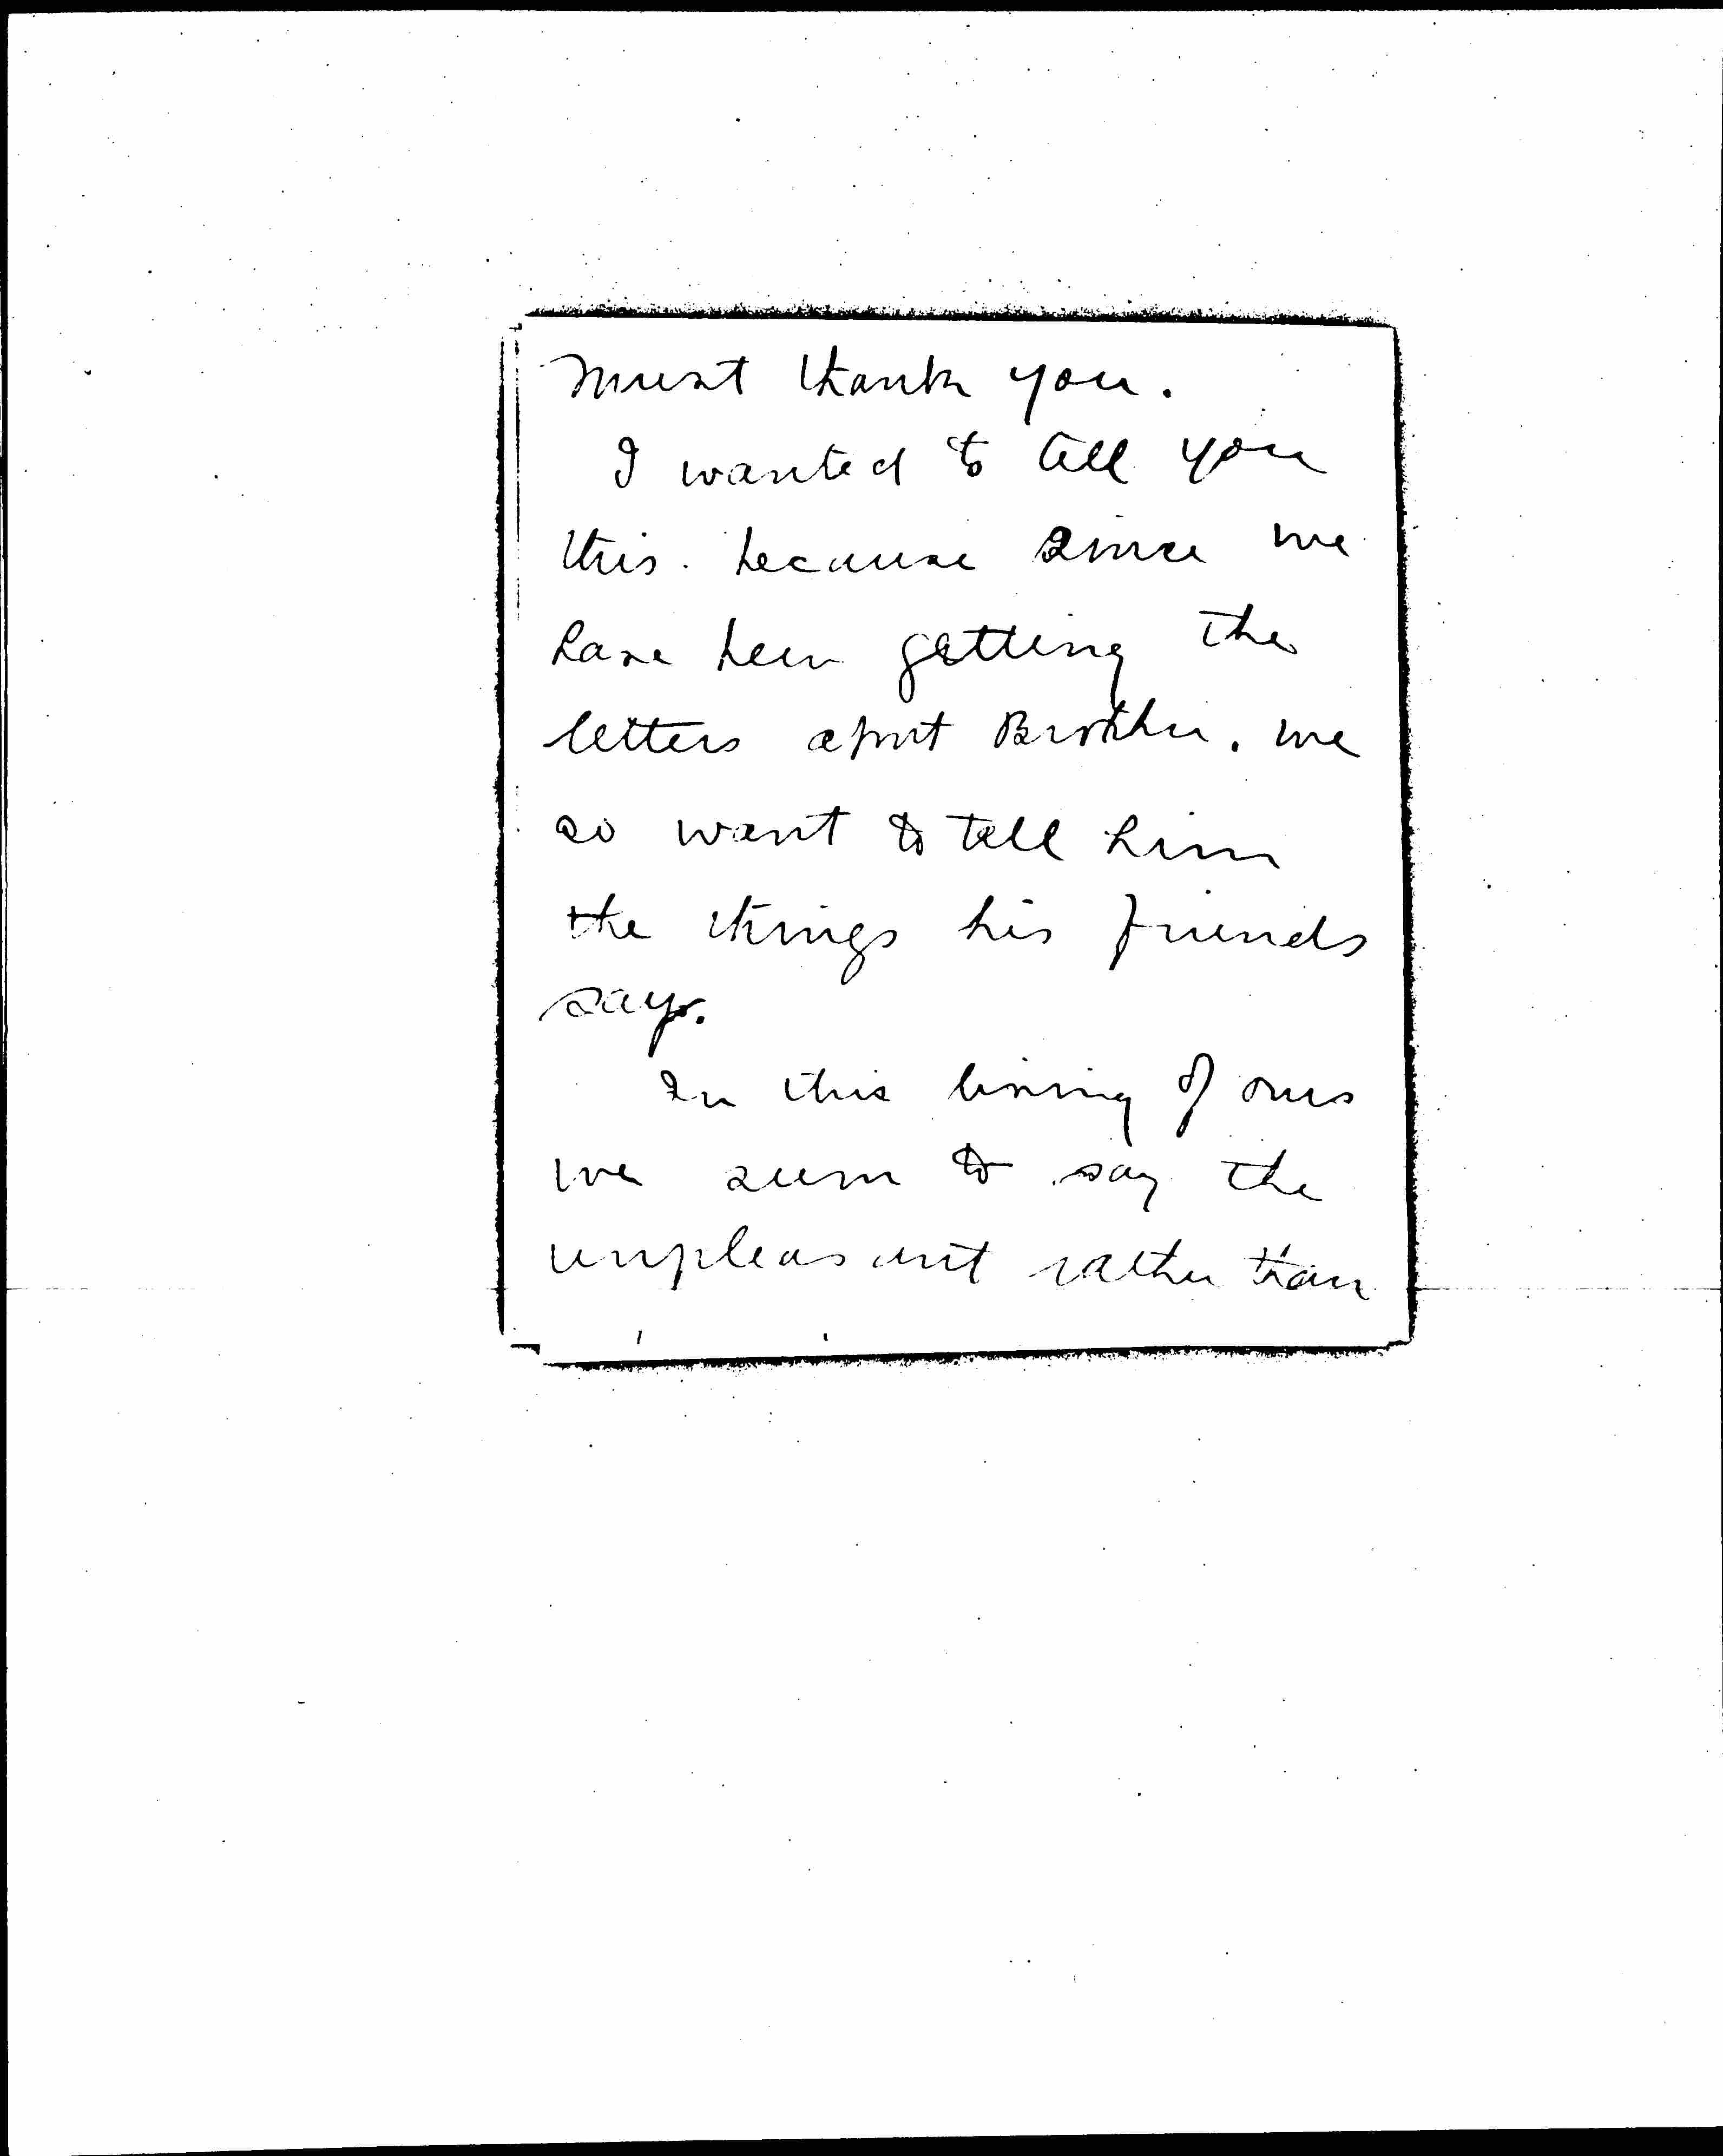 must thank you.
I wanted to tell you
this. because since we
have been getting the
letters about Brother. we
so want to tell him
the things his friends
say.
In this living of ours
we seem to say the
unpleasant rather than